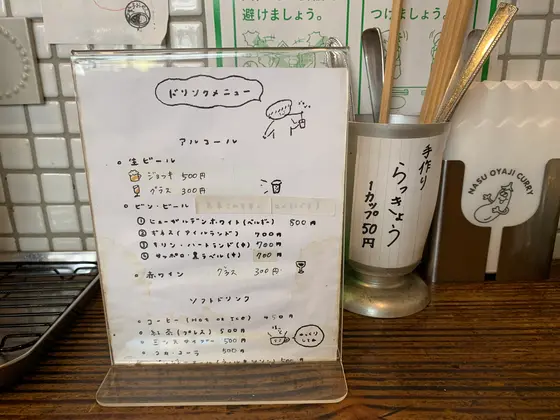 避けましょう。
つけましょう。
ドリンクメニュー
アルコール
生ビール
ジョッキ 500円
グラス 300円
ビン・ビール
① ヒューガルデンホワイト(ベルギー) 800円
② ギネス(アイルランド) 700円
③ キリン・ハートランド(中) 700円
④ サッポロ・黒ラベル(中) 700円
赤ワイン グラス 300円
ソフトドリンク
コーヒー(HOT or ICE) 450円
紅茶(プレス) 500円
500円
コカ・コーラ 500円
ゆっくりしてね
手作り
らっきょう
1カップ50円
NASU OYAJI CURRY